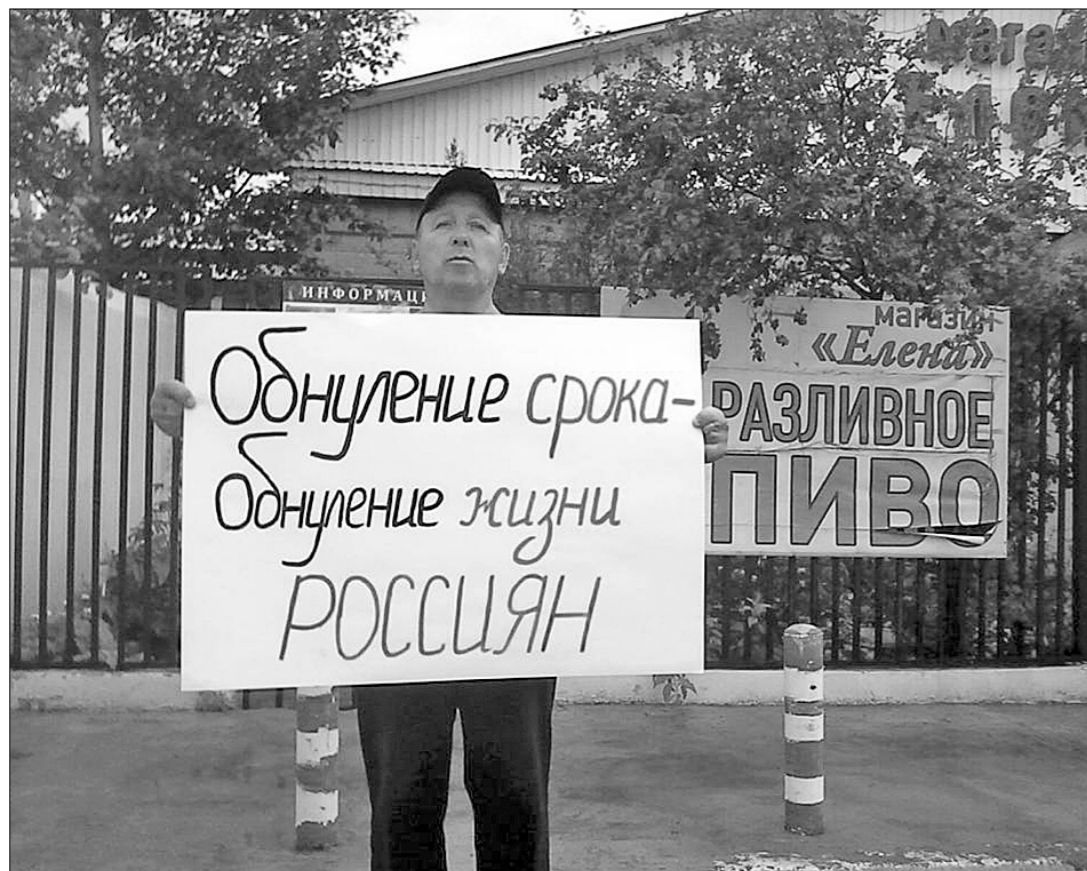 ИНФОРМАЦИ
Обнуление срока-
обнуление жизни
РОССИЯН
магазин
«Елена»
РАЗЛИВНОЕ
ПИВО